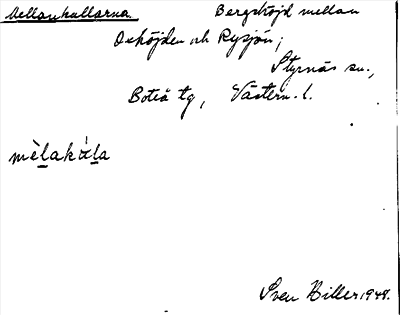 Mellankullarna Bergshöjd mellan
Oxhöjden och Rysjön;
Styrnäs sn.,
Boteå tg, Västern. l.
mèlakàla
Sven Hiller 1948.